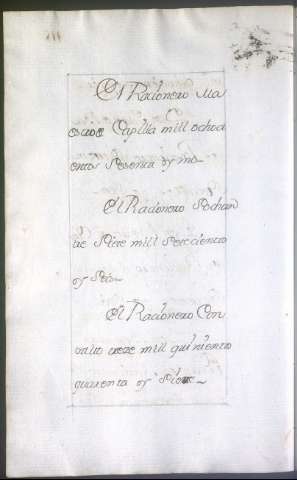 El Racionero Ma
estro Capilla mill ochoci
entos sesenta y uno
El Racionero Sochan
tre siete mill seteciento
y seis
El Racionero Con
treze mill quiniento
quarenta y siete